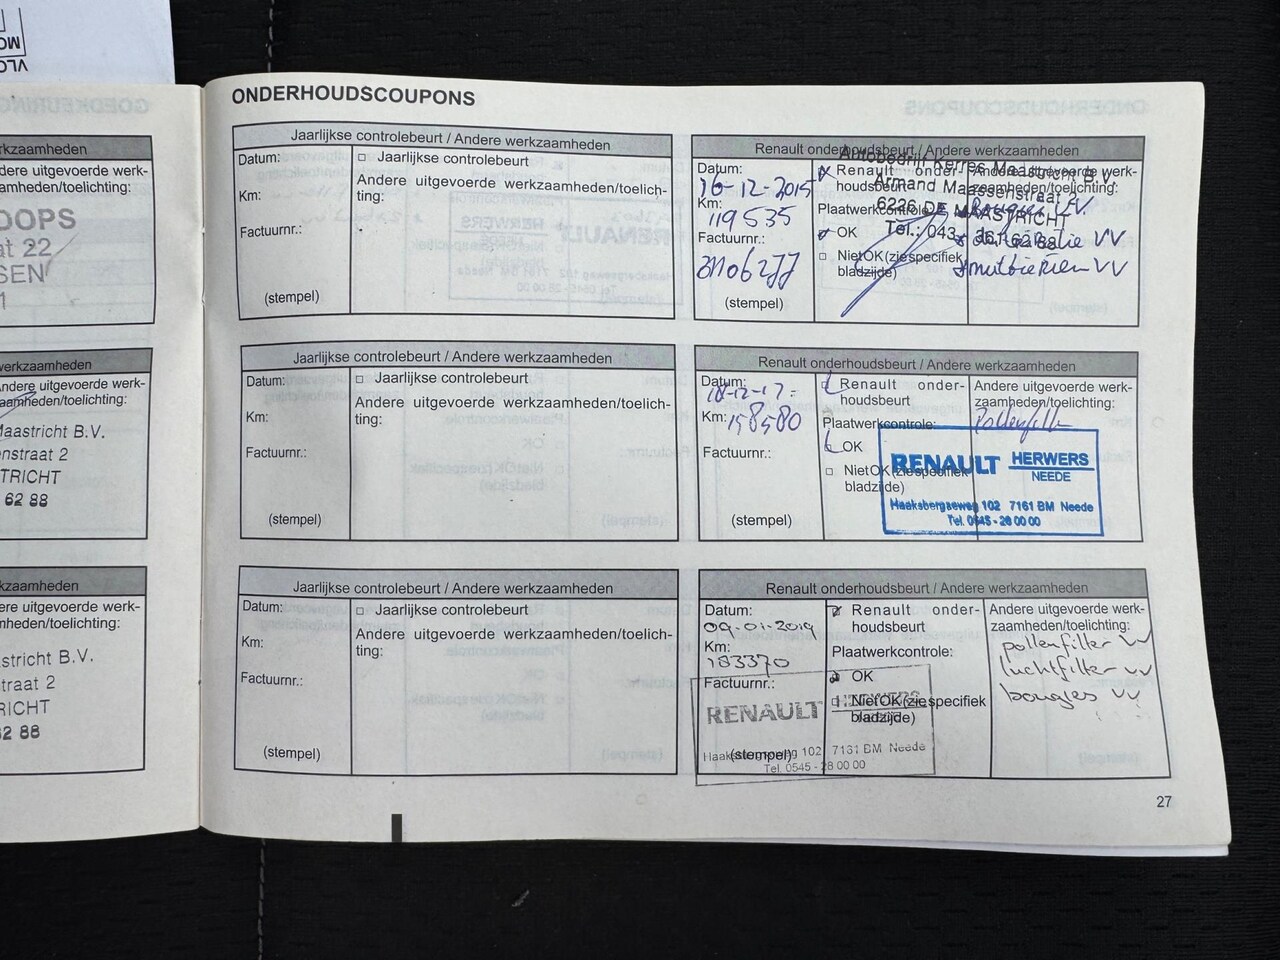 VLO
MO
rkzaamheden
dere uitgevoerde werk-
aamheden/toelichting:
OOPS
at 22
SEN
1
werkzaamheden
Andere uitgevoerde werk-
zaamheden/toelichting:
Maastricht B.V.
enstraat 2
TRICHT
62 88
kzaamheden
ere uitgevoerde werk-
mheden/toelichting:
stricht B.V.
straat 2
RICHT
62 88
ONDERHOUDSCOUPONS
Jaarlijkse controlebeurt / Andere werkzaamheden
Datum:
Km:
Factuurnr.:
(stempel)
□ Jaarlijkse controlebeurt
Andere uitgevoerde werkzaamheden/toelich-
ting:
Renault onderhoudsbeurt / Andere werkzaamheden
Datum:
16-12-2015
Km:
119535
Factuurnr.:
(stempel)
Renault onder-
houdsbeurt
Plaatwerkcontrole:
OK
□ NietOK(ziespecifiek
bladzijde)
Andere uitgevoerde werk-
zaamheden/toelichting:
Bougies VV
VV
ruitwissers VV
Autobedrijf Kerres Maastricht B.V.
Armand Maassenstraat 2
6226 DE MAASTRICHT
Tel.: 043 - 361 62 88
Jaarlijkse controlebeurt / Andere werkzaamheden
Datum:
Km:
Factuurnr.:
(stempel)
□ Jaarlijkse controlebeurt
Andere uitgevoerde werkzaamheden/toelich-
ting:
Renault onderhoudsbeurt / Andere werkzaamheden
Datum:
18-12-17
Km: 158580
Factuurnr.:
(stempel)
Renault onder-
houdsbeurt
Plaatwerkcontrole:
OK
□ NietOK(ziespecifiek
bladzijde)
Andere uitgevoerde werk-
zaamheden/toelichting:
Pollenfilter
RENAULT HERWERS
NEEDE
Haaksbergseweg 102 7161 BM Neede
Tel. 0545 - 28 00 00
Jaarlijkse controlebeurt / Andere werkzaamheden
Datum:
Km:
Factuurnr.:
(stempel)
□ Jaarlijkse controlebeurt
Andere uitgevoerde werkzaamheden/toelich-
ting:
Renault onderhoudsbeurt / Andere werkzaamheden
Datum:
09-01-2019
Km:
183370
Factuurnr.:
(stempel)
Renault onder-
houdsbeurt
Plaatwerkcontrole:
OK
□ NietOK(ziespecifiek
bladzijde)
Andere uitgevoerde werk-
zaamheden/toelichting:
pollenfilter VV
luchtfilter VV
bougies VV
RENAULT HERWERS
Haaksbergseweg 102 7161 BM Neede
Tel. 0545 - 28 00 00
27